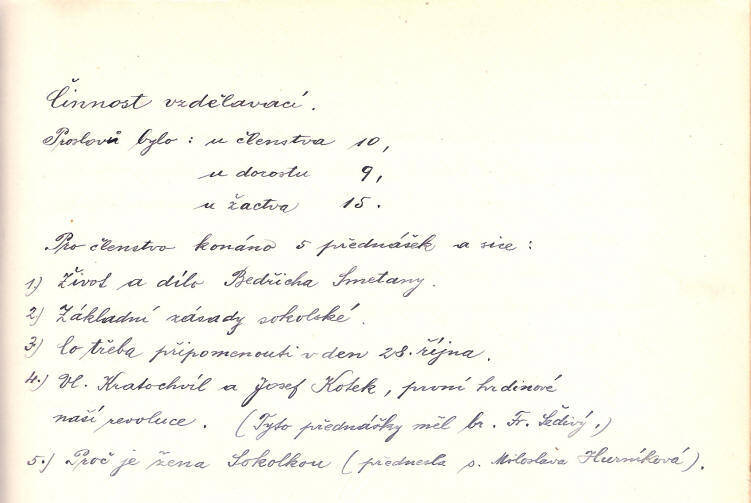 Činnost vzdělavací.
Proslovů bylo : u členstva 10,
u dorostu 9,
u žactva 15.
Pro členstvo konáno 5 přednášek a sice :
1.) Život a dílo Bedřicha Smetany.
2.) Základní zásady sokolské.
3.) Co třeba připomenouti v den 28. října.
4.) Vl. Kratochvíl a Josef Kotek, první hrdinové
naší revoluce. (Tyto přednášky měl br. Fr. Šedivý.)
5.) Proč je žena Sokolkou (přednesla s. Miloslava Hurníková).